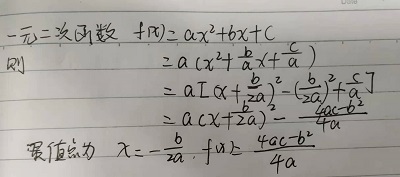 一元二次函数 f(x)=ax²+bx+c
则 =a(x²+b/a x+c/a)
=a[(x+b/2a)²-(b/2a)²+c/a]
=a(x+b/2a)²-4ac-b²/4a
最值点为 x=-b/2a, f(x)=4ac-b²/4a